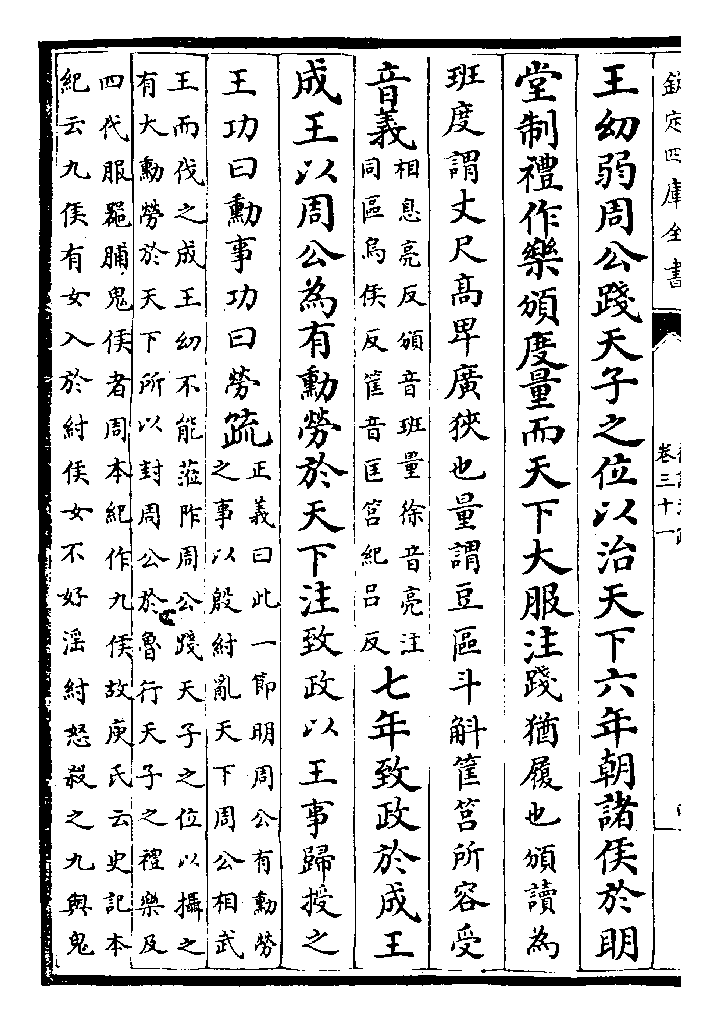 欽定四庫全書
卷三十一
王幼弱周公踐天子之位以治天下六年朝諸侯於明
堂制禮作樂頒度量而天下大服注踐猶履也頒讀為
班度謂丈尺高卑廣狹也量謂豆區斗斛筐筥所容受
音義
相息亮反頒音班量徐音亮注
同區烏侯反筐音匡筥紀吕反
七年致政於成王
成王以周公為有勳勞於天下注致政以王事歸授之
王功曰勳事功曰勞疏
正義曰此一節明周公有勳勞
之事以殷紂亂天下周公相武
王而伐之成王幼不能蒞阼周公踐天子之位以攝之
有大勳勞於天下所以封周公於魯行天子之禮樂及
四代服器脯鬼侯者周本紀作九侯故庾氏云史記本
紀云九侯有女入於紂侯女不好淫紂怒殺之九與鬼